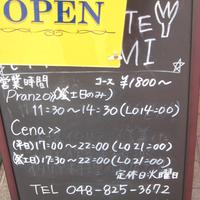 OPEN
TE
MI
営業時間 コース ¥1800~
Pranzo (土日のみ)
11:30~14:30 (LO14:00)
Cena>>
(平日)17:00~22:00 (LO21:00)
(土日)17:30~22:00 (LO21:00)
定休日:火曜日
TEL 048-825-3672